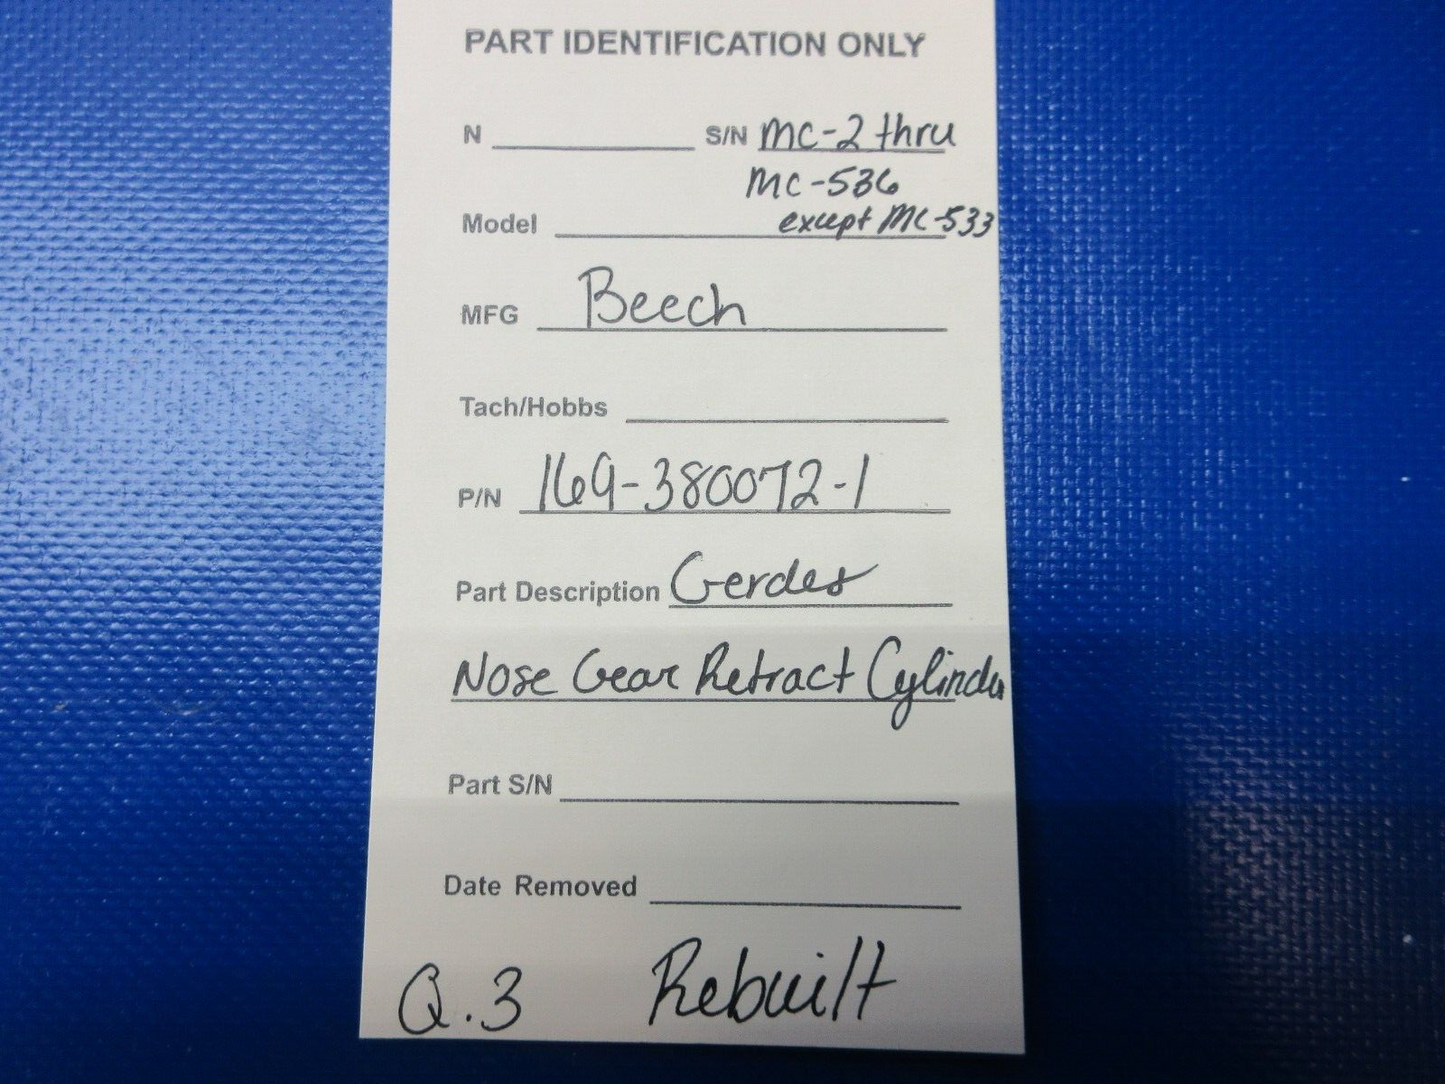 PART IDENTIFICATION ONLY
N S/N MC-2 thru
MC-536
Model except MC-533
MFG Beech
Tach/Hobbs
P/N 169-380072-1
Part Description Gerdes
Nose Gear Retract Cylinder
Part S/N
Date Removed
Q.3 Rebuilt